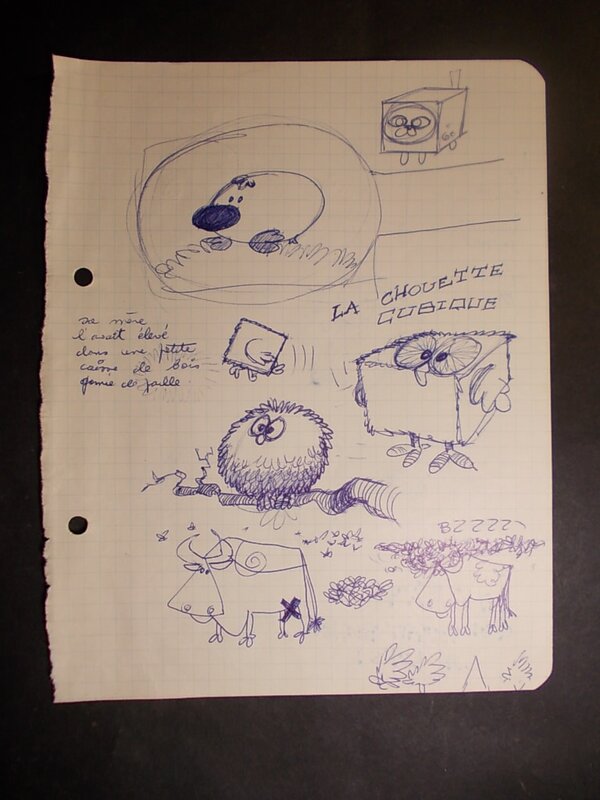 LA CHOUETTE
CUBIQUE
sa mère
l'avait élevé
dans une petite
caisse de bois
garnie de paille.
BZZZZ